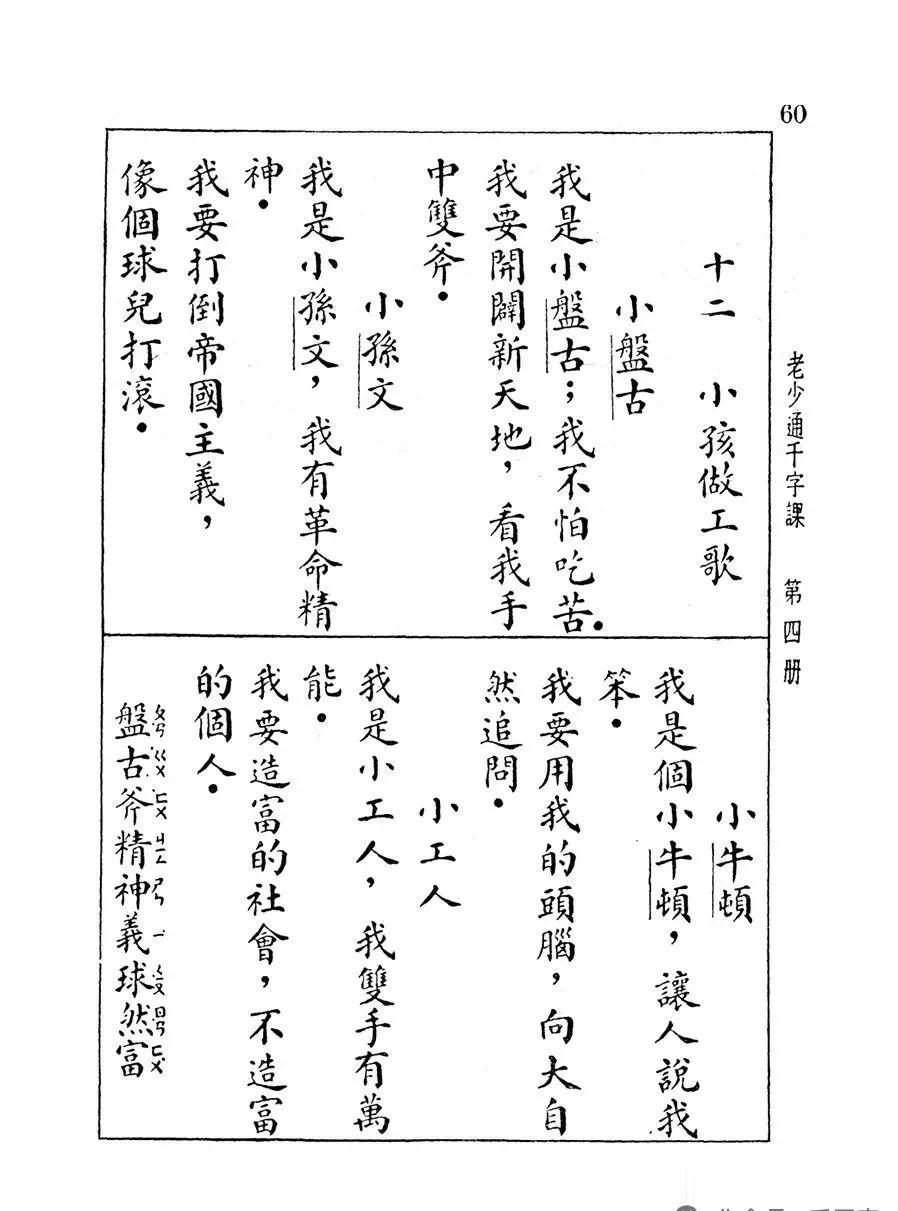 60
老少通千字課 第四册
十二 小孩做工歌
小盤古
我是小盤古；我不怕吃苦.
我要開闢新天地，看我手
中雙斧.
小孫文
我是小孫文，我有革命精
神.
我要打倒帝國主義，
像個球兒打滾.
小牛頓
我是個小牛頓，讓人說我
笨.
我要用我的頭腦，向大自
然追問.
小工人
我是小工人，我雙手有萬
能.
我要造富的社會，不造富
的個人.
盤古斧精神義球然富